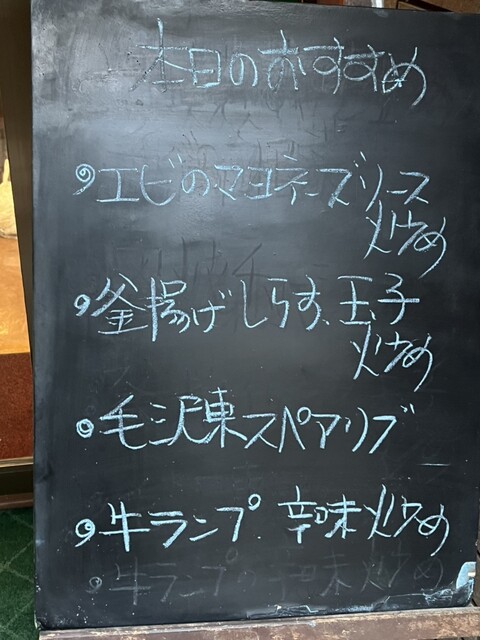 本日のおすすめ
エビのマヨネーズソース
炒め
釜揚げしらす、玉子
炒め
毛沢東スペアリブ
牛ランプ 辛味炒め
牛ランプの辛味炒め